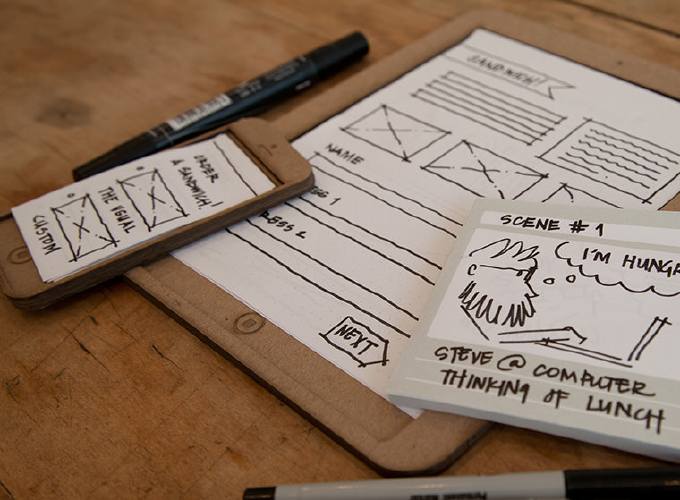 SANDWICH!
NAME
ESS 1
RESS 2
NEXT
ORDER
A SANDWICH!
THE USUAL
CUSTOM
SCENE # 1
I'M HUNGR
STEVE @ COMPUTER
THINKING OF LUNCH